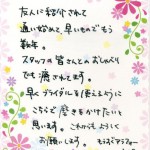 友人に紹介されて
通い始めて早いものでもう
数年。
スタッフの皆さんとのおしゃべり
でも癒されてます。
早くブライダルを使えるように
こちらで磨きをかけたいと
思います。これからもよろしく
お願いします。